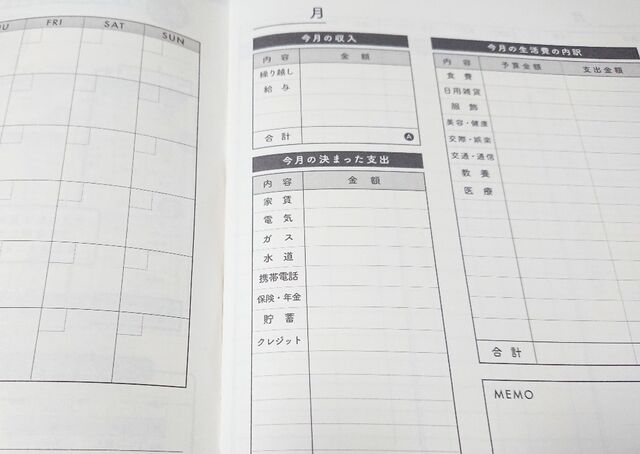 FRI SAT SUN
月
今月の収入
内容 金額
繰り越し
給与
合計 A
今月の決まった支出
内容 金額
家賃
電気
ガス
水道
携帯電話
保険・年金
貯蓄
クレジット
今月の生活費の内訳
内容 予算金額 支出金額
食費
日用雑貨
服飾
美容・健康
交際・娯楽
交通・通信
教養
医療
合計
MEMO